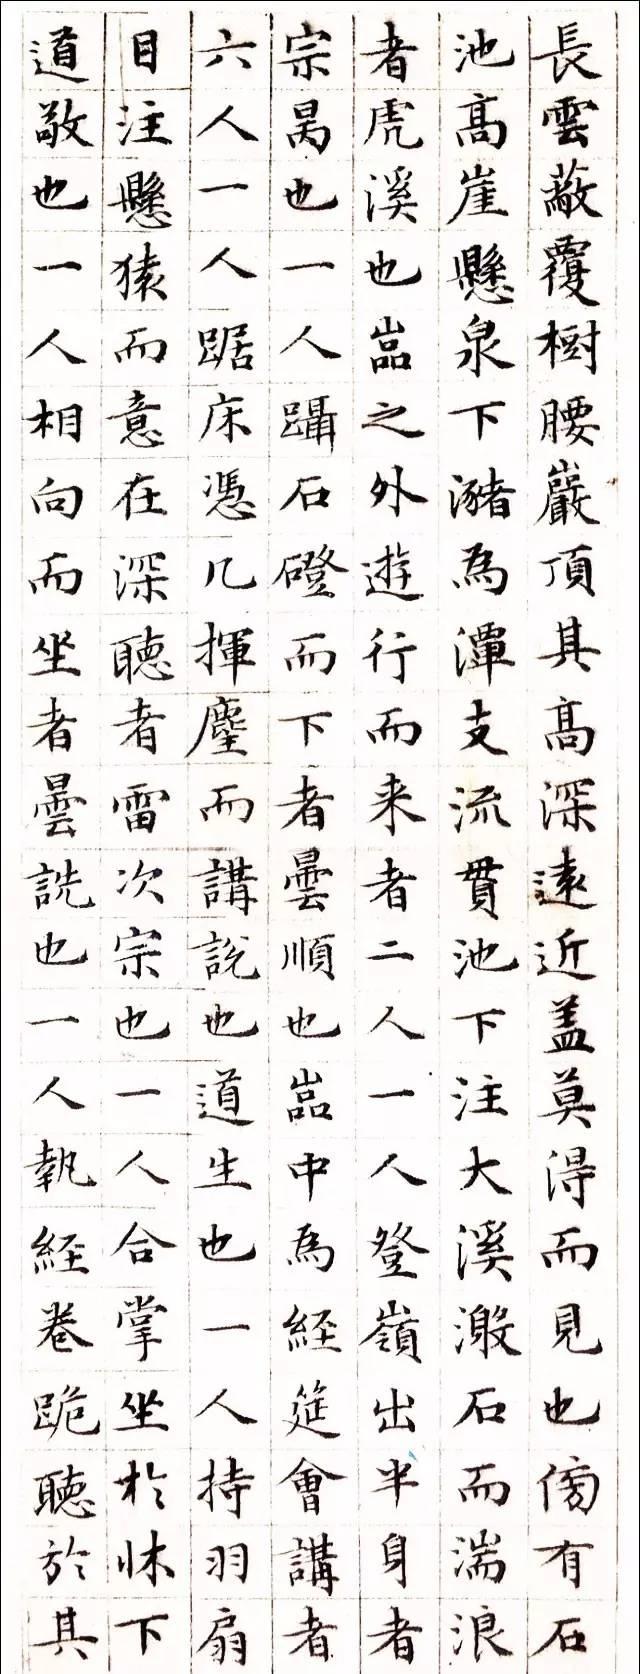 長雲蔽覆樹腰巖頂其高深遠近蓋莫得而見也傍有石
池高崖懸泉下瀦為潭支流貫池下注大溪激石而湍浪
者虎溪也嵓之外遊行而来者二人一人登嶺出半身者
宗昺也一人躡石磴而下者曇順也嵓中為經筵會講者
六人一人踞床憑几揮麈而講說也道生也一人持羽扇
目注懸猿而意在深聽者雷次宗也一人合掌坐於床下
道敬也一人相向而坐者曇詵也一人執經卷跪聽於其